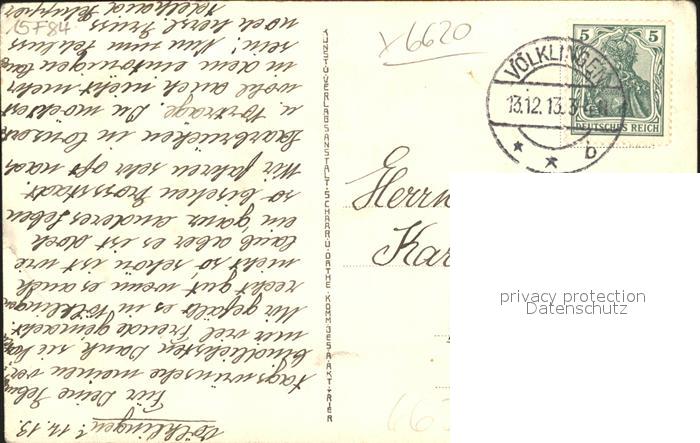 Völklingen 14.12.13.
Für Deine Geburts-
tagswünsche meinen ver-
bindlichsten Dank, sie haben
mir viel Freude gemacht.
Mir gefällt es in Völklingen
recht gut, wenn es auch
nicht so schön ist wie
aber es ist doch
ein ganz anderes Leben
so bischen Grosstadt.
Wir fahren sehr oft nach
Saarbrücken in Konzert
u. Vorträge. Du möchtest
wohl auch nicht mehr
in dem eintönigen
sein! Nun zum Schluss
noch herzl. Gruss
15F84
x6620
KUNST U. VERLAGSANSTALT · SCHAAR U. DATHE · KOMM. GES. A. AKT. TRIER
5 5
DEUTSCHES REICH
VÖLKLINGEN
13.12.13.
* * b
Herrn
Kar
privacy protection
Datenschutz